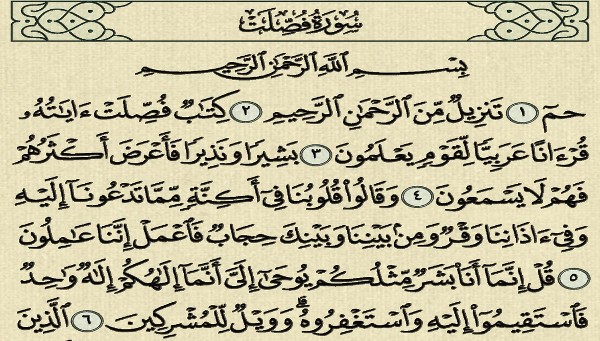 سُورَةُ فُصِّلَتْ
بِسْمِ ٱللَّهِ ٱلرَّحْمَٰنِ ٱلرَّحِيمِ
حمٓ ١ تَنزِيلٌ مِّنَ ٱلرَّحْمَٰنِ ٱلرَّحِيمِ ٢ كِتَٰبٌ فُصِّلَتْ ءَايَٰتُهُۥ
قُرْءَانًا عَرَبِيًّا لِّقَوْمٍ يَعْلَمُونَ ٣ بَشِيرًا وَنَذِيرًا فَأَعْرَضَ أَكْثَرُهُمْ
فَهُمْ لَا يَسْمَعُونَ ٤ وَقَالُوا۟ قُلُوبُنَا فِىٓ أَكِنَّةٍ مِّمَّا تَدْعُونَآ إِلَيْهِ
وَفِىٓ ءَاذَانِنَا وَقْرٌ وَمِنۢ بَيْنِنَا وَبَيْنِكَ حِجَابٌ فَٱعْمَلْ إِنَّنَا عَٰمِلُونَ
٥ قُلْ إِنَّمَآ أَنَا۠ بَشَرٌ مِّثْلُكُمْ يُوحَىٰٓ إِلَىَّ أَنَّمَآ إِلَٰهُكُمْ إِلَٰهٌ وَٰحِدٌ
فَٱسْتَقِيمُوٓا۟ إِلَيْهِ وَٱسْتَغْفِرُوهُ ۗ وَوَيْلٌ لِّلْمُشْرِكِينَ ٦ ٱلَّذِينَ